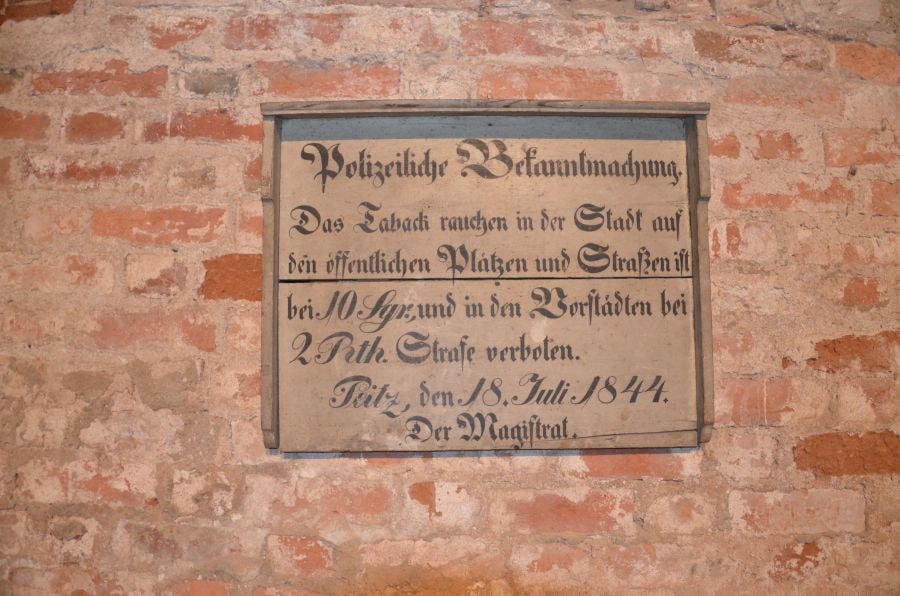 Polizeiliche Bekanntmachung.
Das Taback rauchen in der Stadt auf
den öffentlichen Plätzen und Straßen ist
bei 10 Sgr., und in den Vorstädten bei
2 Rth. Strafe verboten.
Peitz, den 18. Juli 1844.
Der Magistrat.